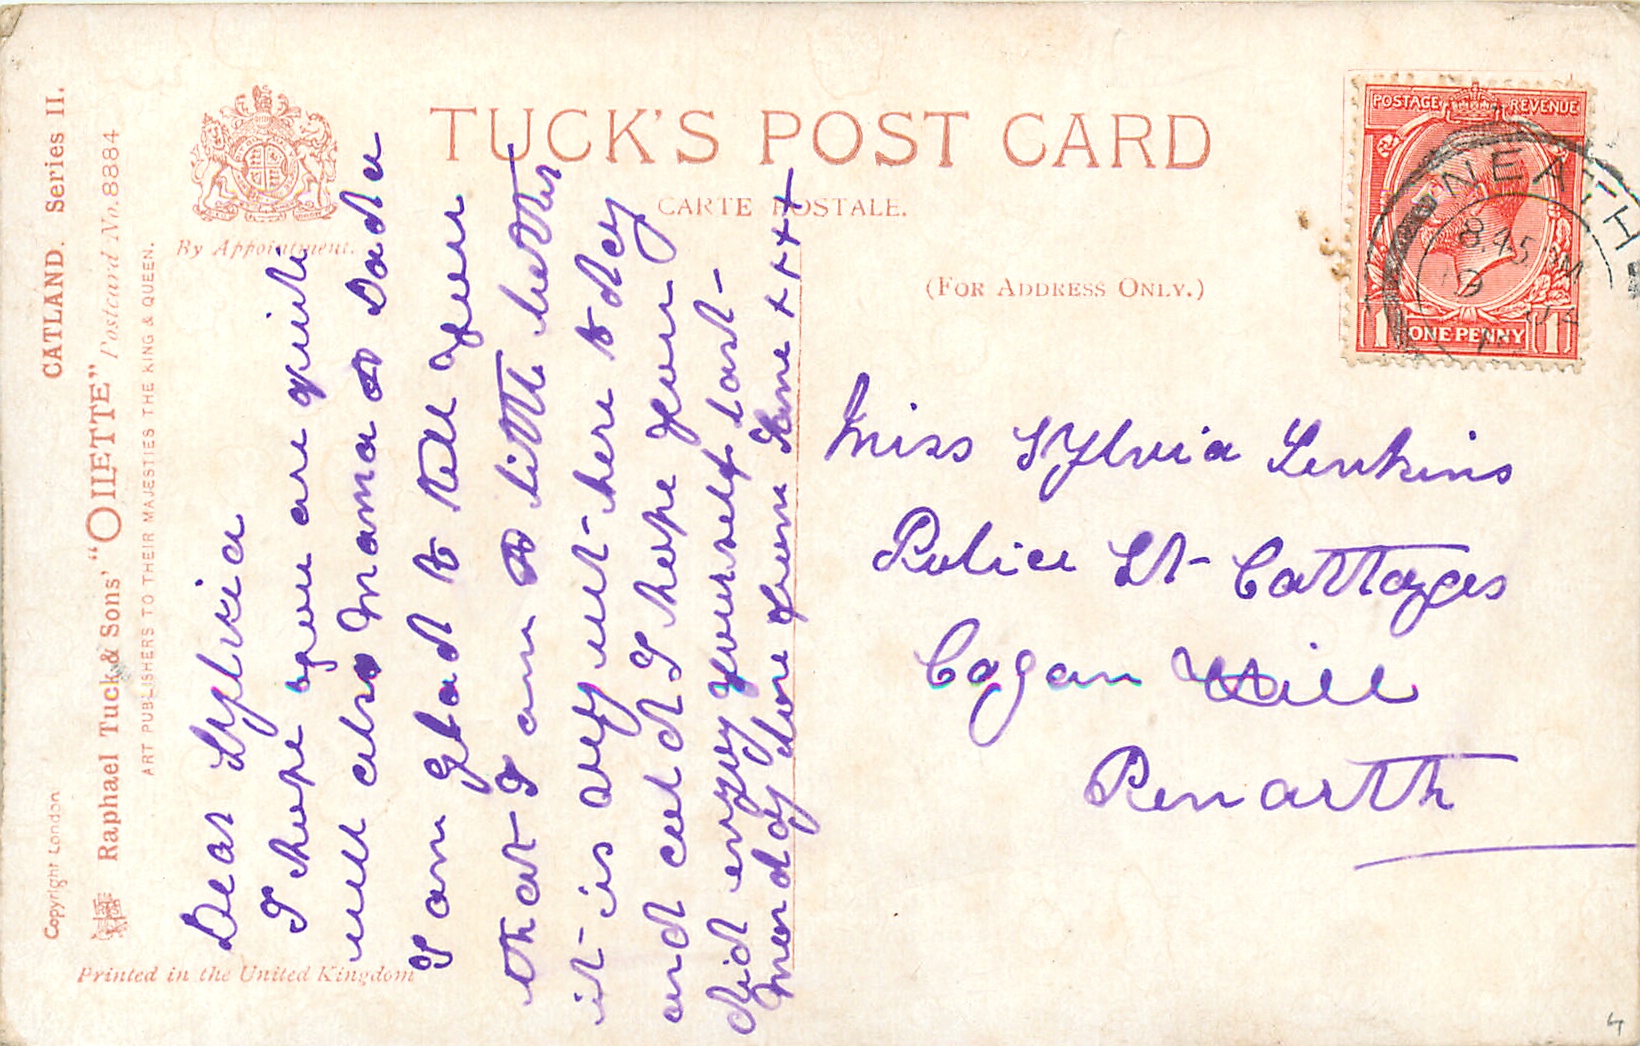 CATLAND. Series II.
Copyright London
Raphael Tuck & Sons' "OILETTE" Postcard No. 8884
ART PUBLISHERS TO THEIR MAJESTIES THE KING & QUEEN.
By Appointment.
Printed in the United Kingdom
TUCK'S POST CARD
CARTE POSTALE.
(FOR ADDRESS ONLY.)
POSTAGE REVENUE
1 ONE PENNY 1
NEATH
8 45 M
19
Dear Sylvia
I hope you are quite
well also Mama & Dada
I am glad to tell you
that I am a little better
it is very wet here to dey
and cold I hope you
did enjoy yourself last
monday love from
Miss Sylvia Jenkins
Police St Cottages
Cogan Hill
Penarth
4